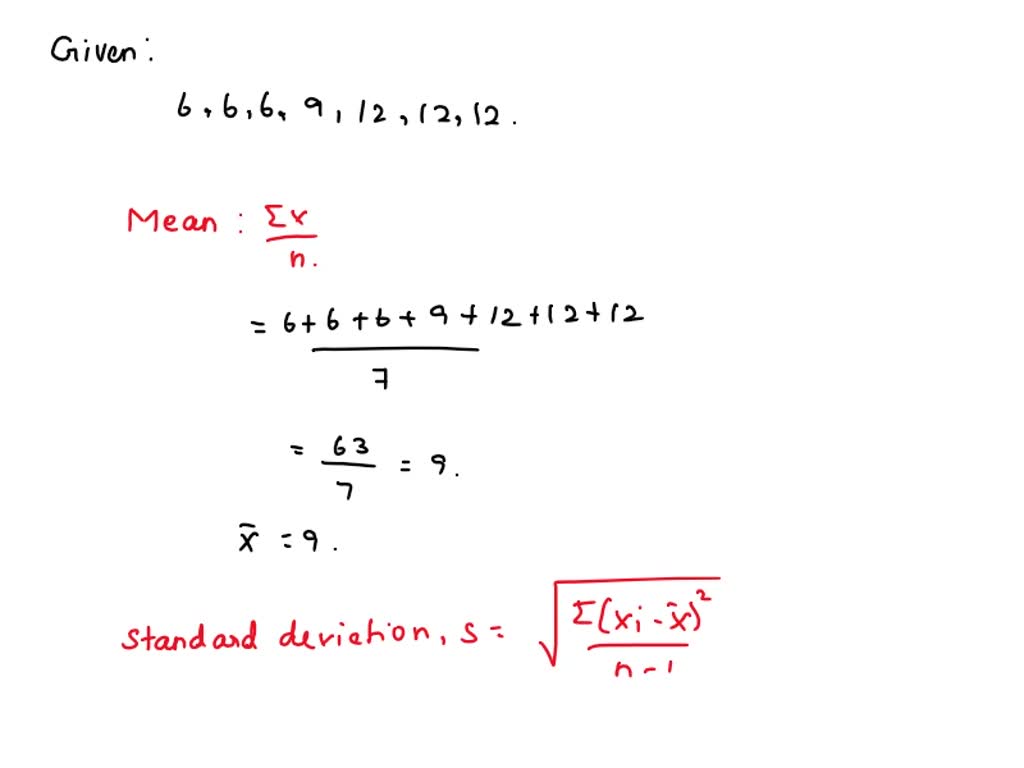 Given:
6, 6, 6, 9, 12, 12, 12.
Mean : Σx
n.
= 6+6+6+9+12+12+12
7
= 63
7
= 9.
x̄ = 9.
standard deviation, s = √ Σ(xi-x̄)²
n-1